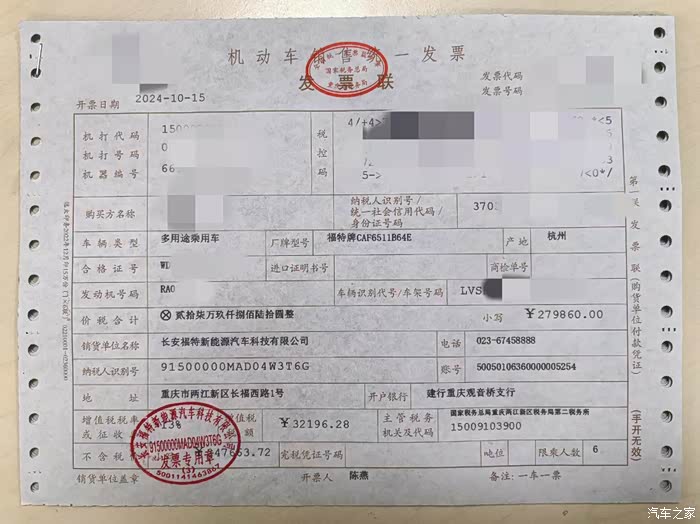 机动车销售统一发票
发票联
国家税务总局
发票代码
发票号码
开票日期 2024-10-15
机打代码 15000
机打号码 0
机器编号 66
税控码
购买方名称
纳税人识别号/统一社会信用代码/身份证号码 370
车辆类型 多用途乘用车 厂牌型号 福特牌CAF6511B64E 产地 杭州
合格证号 进口证明书号 商检单号
发动机号码 车辆识别代号/车架号码 LVS
价税合计 ⊗ 贰拾柒万玖仟捌佰陆拾圆整 小写 ￥279860.00
销货单位名称 长安福特新能源汽车科技有限公司 电话 023-67458888
纳税人识别号 91500000MAD04W3T6G 账号 50050106360000005254
地址 重庆市两江新区长福西路1号 开户银行 建行重庆观音桥支行
增值税税率或征收 13% 值税额 ￥32196.28 主管税务机关及代码 国家税务总局重庆两江新区税务局第二税务所 15009103900
不含税 47663.72 完税凭证号码 吨位 限乘人数 6
销货单位盖章 开票人 陈燕 备注:一车一票
长安福特新能源汽车科技有限公司
91500000MAD04W3T6G
发票专用章
(3)
5001141463867
第一联 发票联(购货单位付款凭证)
(手开无效)
汽车之家